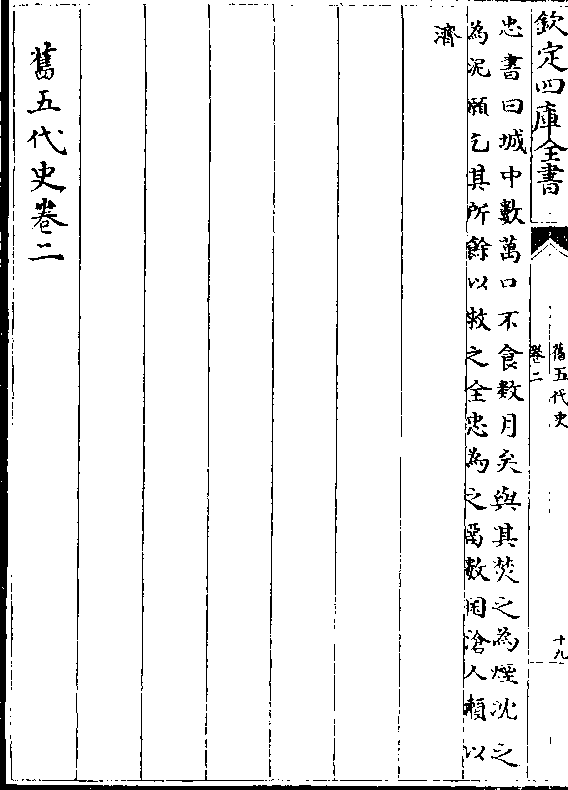 欽定四庫全書
舊五代史
卷二
十九
忠書曰城中數萬口不食數月矣與其焚之為煙沈之
為泥願乞其所餘以救之全忠為之留數囷滄人賴以
濟
舊五代史卷二